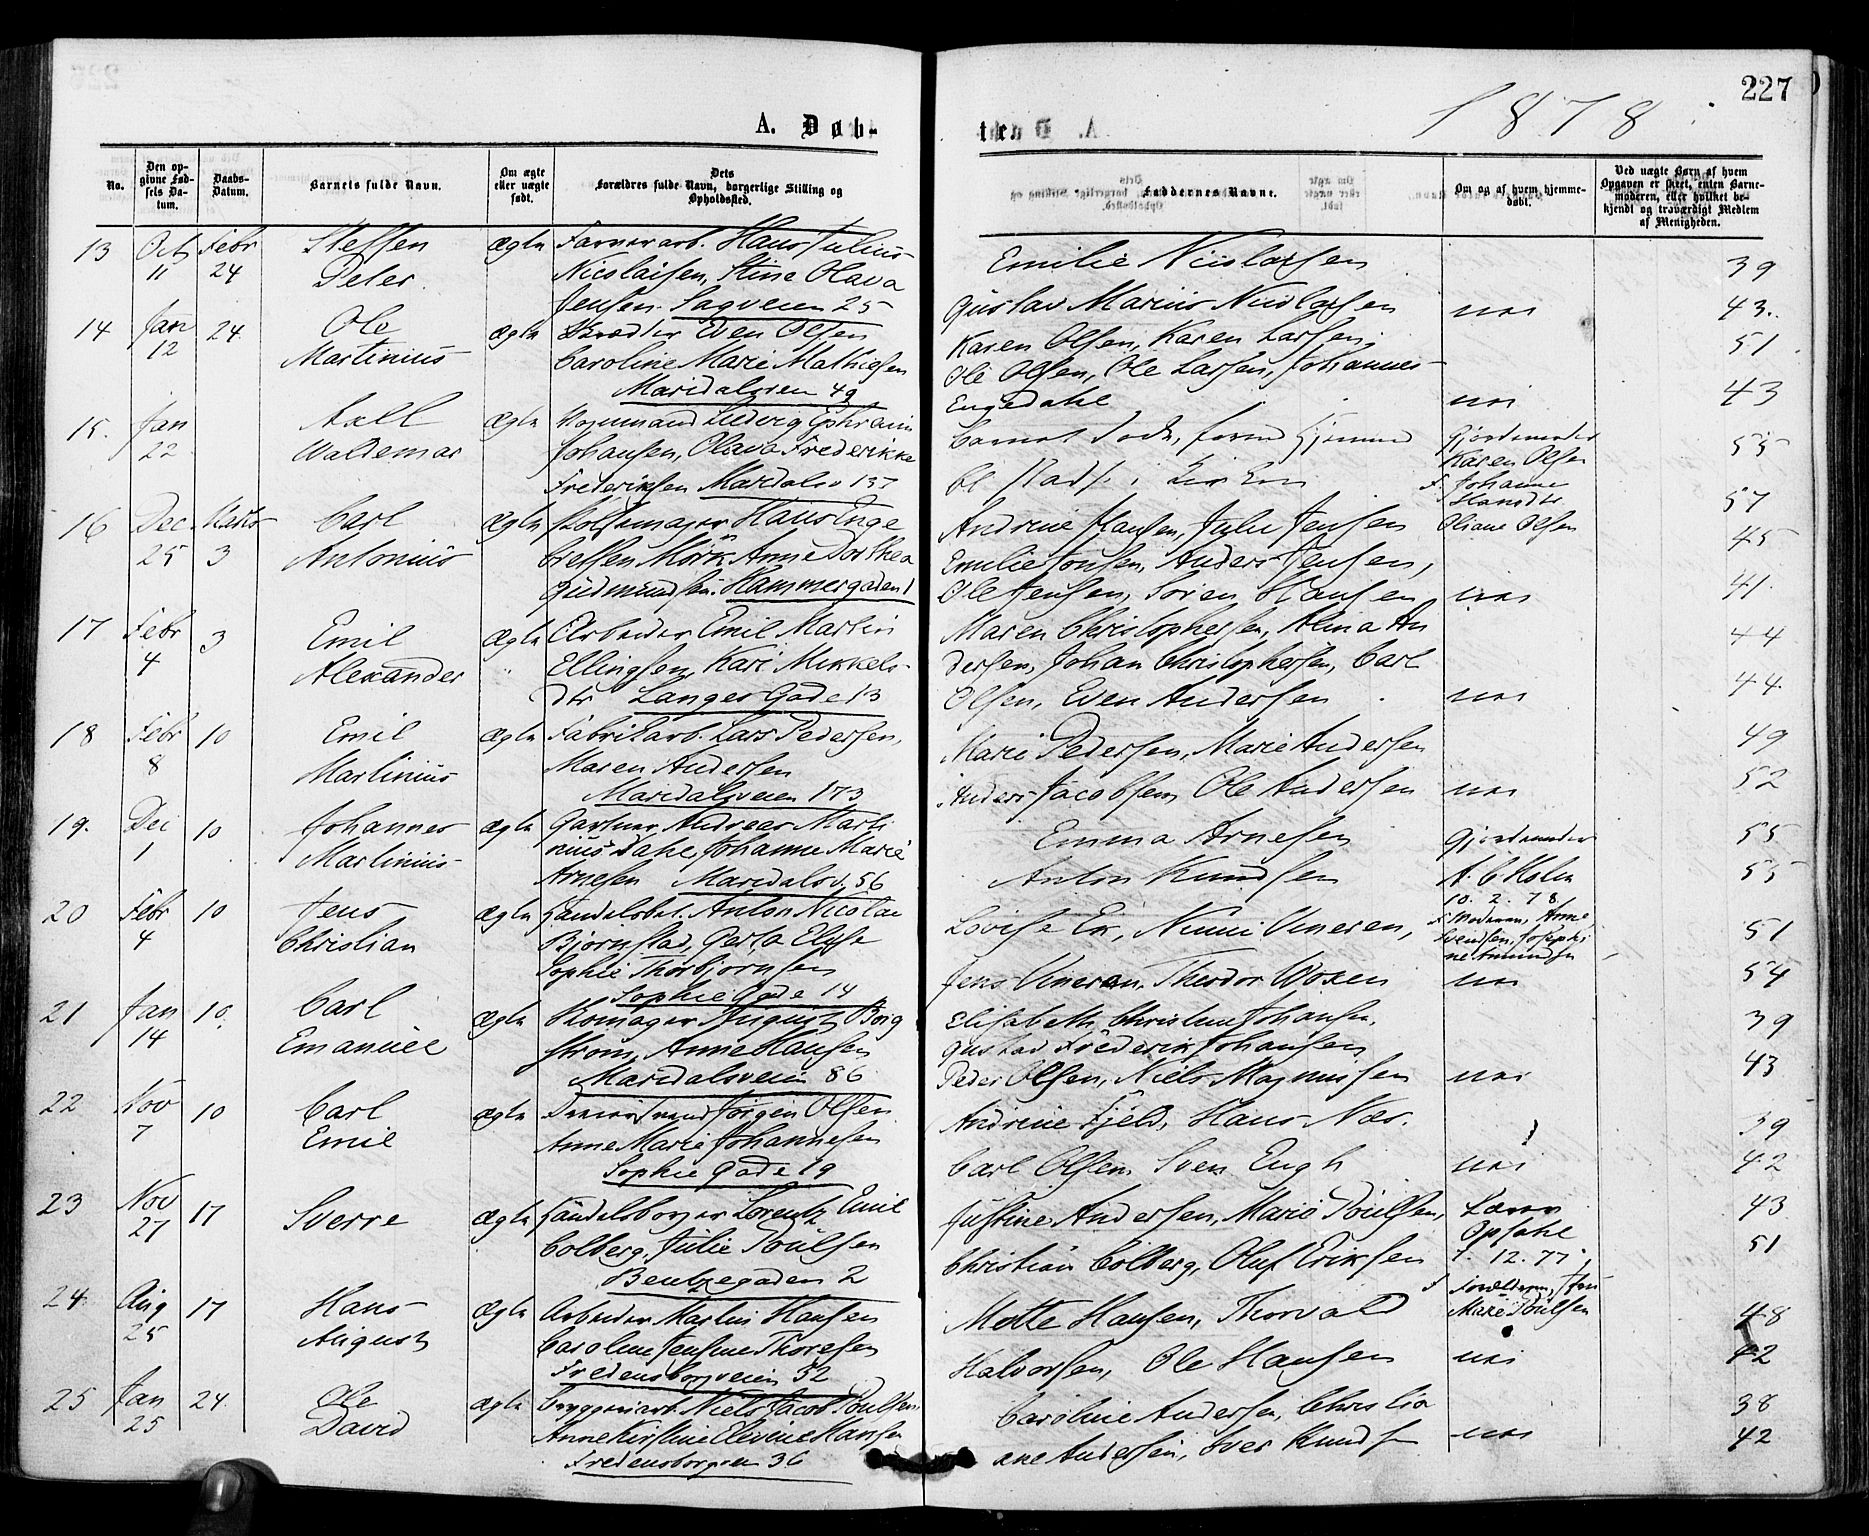 227
1878
A. Døb-
te.
No.
Den op-
givne Fød-
sels Da-
tum.
Daabs-
Datum.
Barnets fulde Navn.
Om ægte
eller uægte
født.
Dets
Forældres fulde Navn, borgerlige Stilling og
Opholdssted.
Faddernes Navne.
Om og af hvem hjemme-
døbt.
Ved uægte Børn af hvem
Opgaven er skeet, enten Barne-
moderen, eller hvilket be-
kjendt og troværdigt Medlem
af Menigheden.
13 Oct 11 Febr 24 Steffen Peter ægte
Farverarb. Hans Julius
Nicolaisen, Stine Olava
Jensen. Sagveien 25
Emilie Nicolaisen
Gustav Marius Nicolaisen nei
39
43.
14 Jan 12 24. Ole Martinius ægte
Skrædder Even Olsen
Caroline Marie Mathiesen
Maridalsveien 49
Karen Olsen, Karen Larsen,
Ole Olsen, Ole Larsen, Johannes
Engedahl nei
51
43
15. Jan 22 Axel Waldemar ægte
Ludvig Ephraim
Johansen, Olava Frederikke
Frederiksen Maridalsv 137
Barnet død, førend
st. i Kirken
Gjordemoder
Karen Olsen
F. Johanne
Oliane Olsen
55
57
16 Dec 25 Marts 3 Carl Antonius ægte
Hans Inge
Mørk Anne Dorthea
Gudmundsen. Hammergaden 1
Andrine Hansen, Julie Jensen
Emilie Jonsen, Anders Jensen,
Ole Jensen, Søren Hansen nei
45
41.
17 Febr 4 3 Emil Alexander ægte
Arbeider Emil Martin
Ellingsen, Kari Mikkels-
dtr Langes Gade 13
Maren Christophersen, Alma An
dersen, Johan Christophersen, Carl
Olsen, Even Andersen nei
44
44.
18 Febr 8 10 Emil Martinius ægte
Fabrikarb. Lars Pedersen,
Maren Andersen
Maridalsveien 173
Marie Pedersen, Marie Andersen
Anders Jacobsen, Ole Andersen nei
49
52
19. Dec 1 10 Johannes Martinius ægte
Gartner Andreas Marti
nius Dahl, Johanne Marie
Arnesen Maridalsv. 56
Emma Arnesen
Anton Knudsen
Gjordemoder
A. C. Holm
10. 2. 78.
F. Moderen, Anne
Svendsen, Josephi
ne Amundsen
55
55
20 Febr 4 10 Jens Christian ægte
Handelsbet. Anton Nicolai
Bjørnstad, Gerla Elise
Sophie Thorbjørnsen
Sophie Gade 14
Lovise Er, Ninni Vineren,
Jens Vineren, Theodor Woxen nei
51
54
21 Jan 14 10. Carl Emanuel ægte
Skomager August Borg
strøm, Anne Hansen
Maridalsveien 86
Elisabeth Christine Johansen,
Gustav Frederik Johansen
Peder Olsen, Niels Magnussen nei
39
43
22 Nov 7 10 Carl Emil ægte
Jørgen Olsen
Anne Marie Johannesen
Sophie Gade 19
Andrine Fjeld, Hans Næs.
Carl Olsen, Sven Engh nei
39
42
23 Nov 27 17 Sverre ægte
Handelsborger Lorentz Emil
Colberg, Julie Poulsen
Bentzegaden 2
Justine Andersen, Marie Poulsen,
Christian Colberg, Oluf Eriksen
Lærer
Opsahl
12. 77
F Forældrene,
Marie Poulsen
43
51
24. Aug 25 17 Hans August ægte
Arbeider Martin Hansen
Caroline Jensine Thoresen
Fredensborgveien 52
Mette Hansen, Thorvald
Halvorsen, Ole Hansen nei
48
42
25 Jan 25 24. Ole David ægte
Bryggeriarb. Niels Jacob Poulsen,
Anne Kirstine Elevine Hansen
Fredensborgveien 36
Caroline Andersen, Christia
ane Andersen, Iver Knudsen nei
38
42